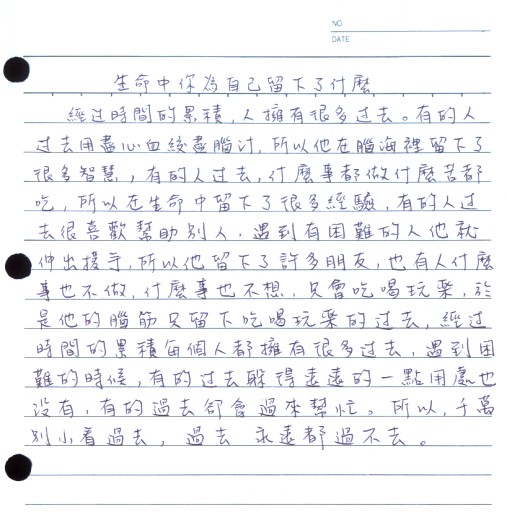 NO
DATE
生命中你為自己留下了什麼
經过時間的累積,人擁有很多过去。有的人
过去用盡心血絞盡腦汁,所以他在腦海裡留下了
很多智慧,有的人过去,什麼事都做什麼苦都
吃,所以在生命中留下了很多經驗,有的人过
去很喜歡幫助別人,遇到有困難的人他就
伸出援手,所以他留下了許多朋友,也有人什麼
事也不做,什麼事也不想,只會吃喝玩樂,於
是他的腦筋只留下吃喝玩樂的过去,經过
時間的累積每個人都擁有很多过去,遇到困
難的時候,有的过去躲得遠遠的一點用處也
沒有,有的過去卻會過來幫忙。所以,千萬
別小看過去,過去永遠都過不去。